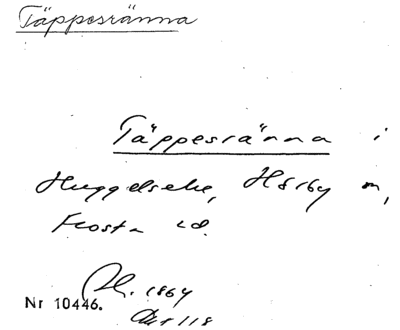 Täppesränna
Täppesränna i
Huggelseke, Hörby sn,
Frosta hd.
1864
Nr 10446.
Akt 118